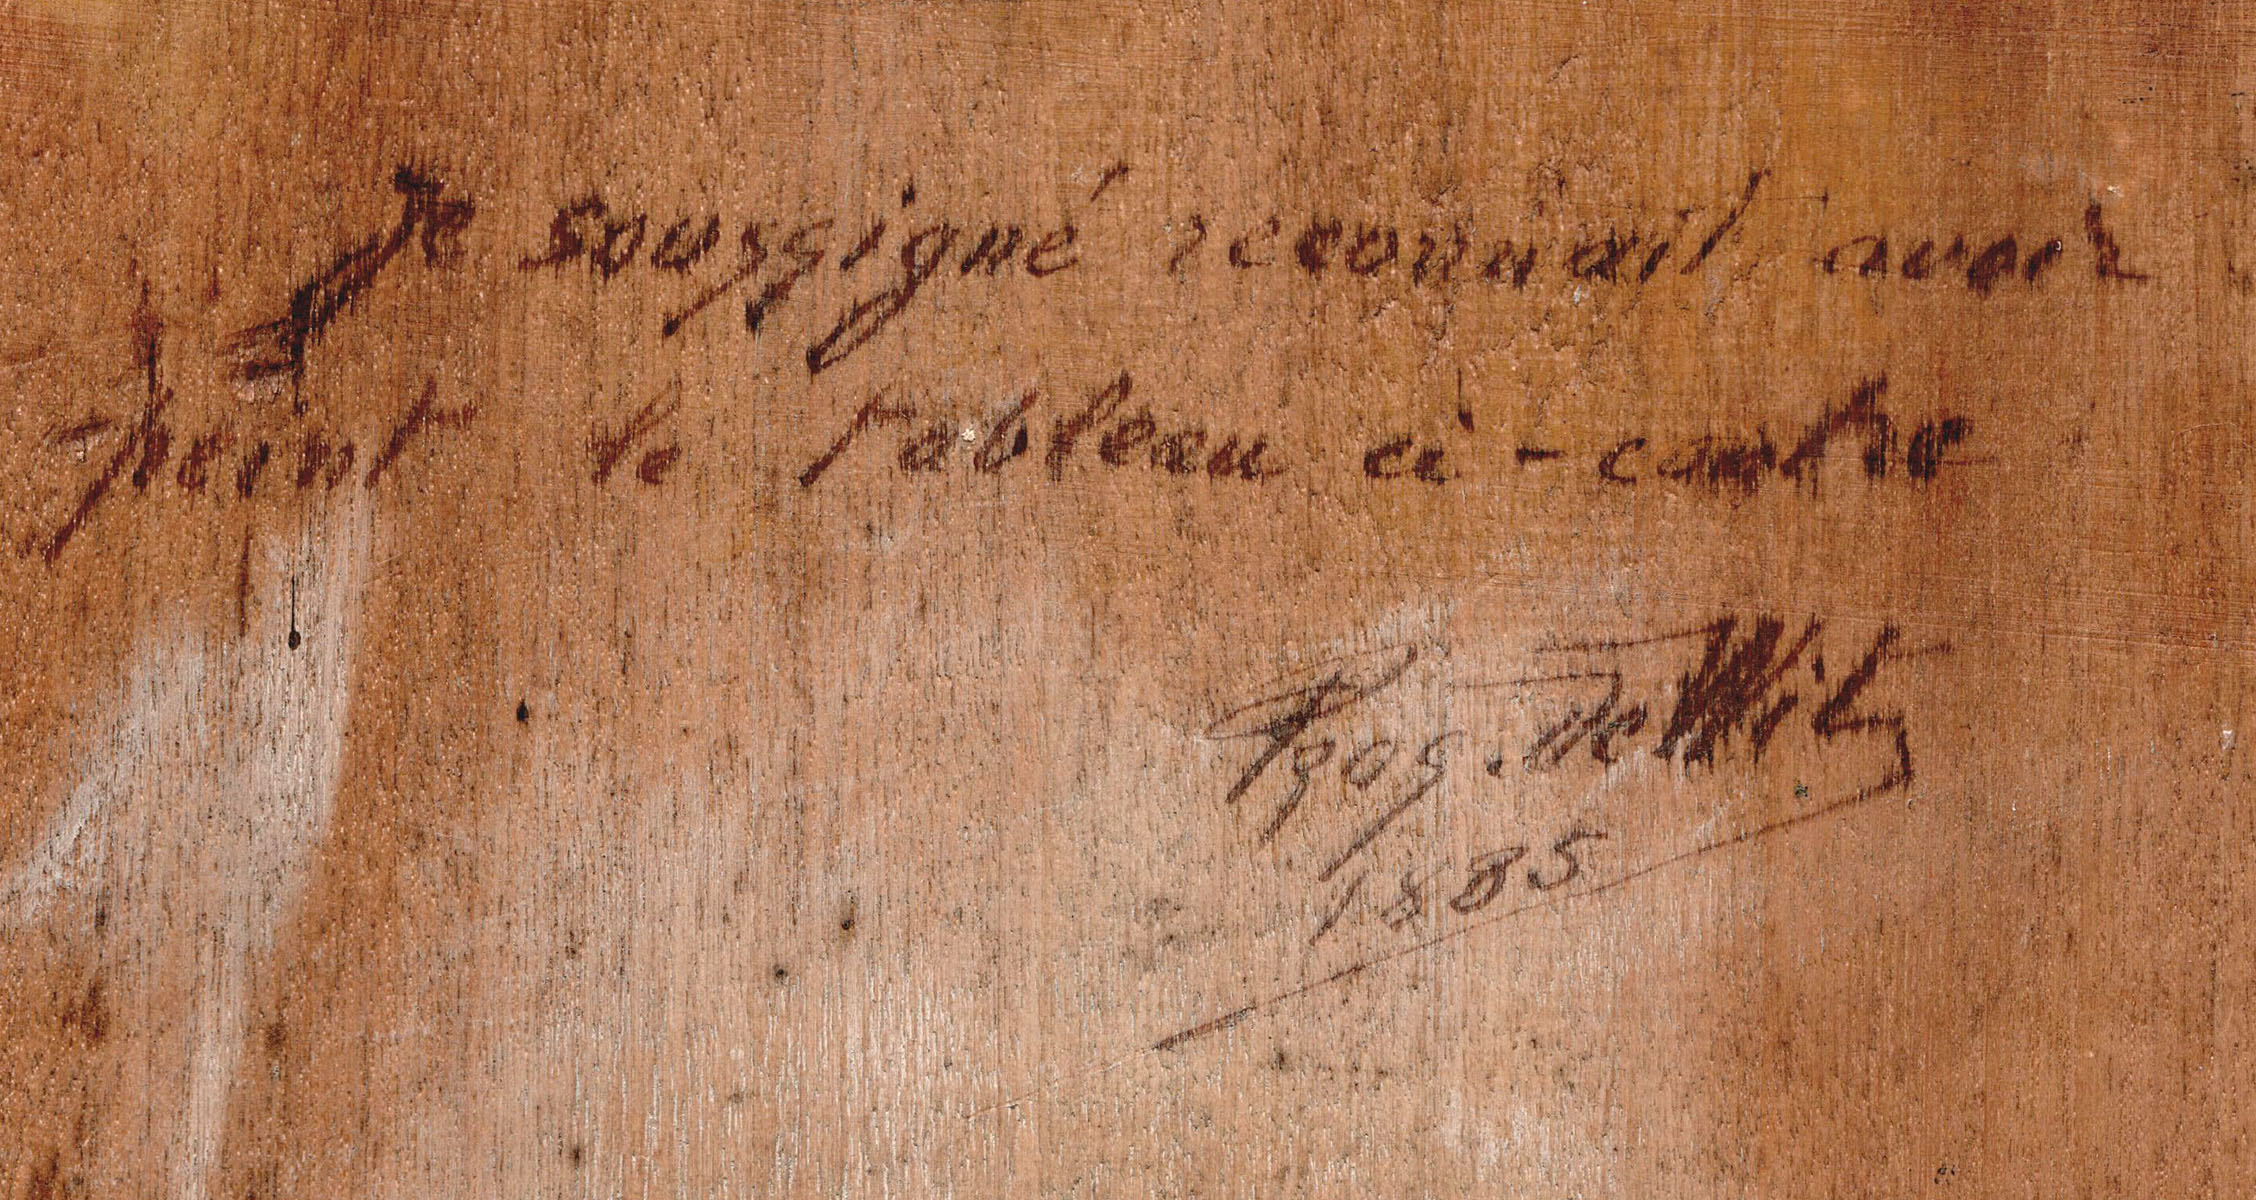 Je soussigné reconnait avoir
peint le tableau ci-contre
Pros. De Wit
1885